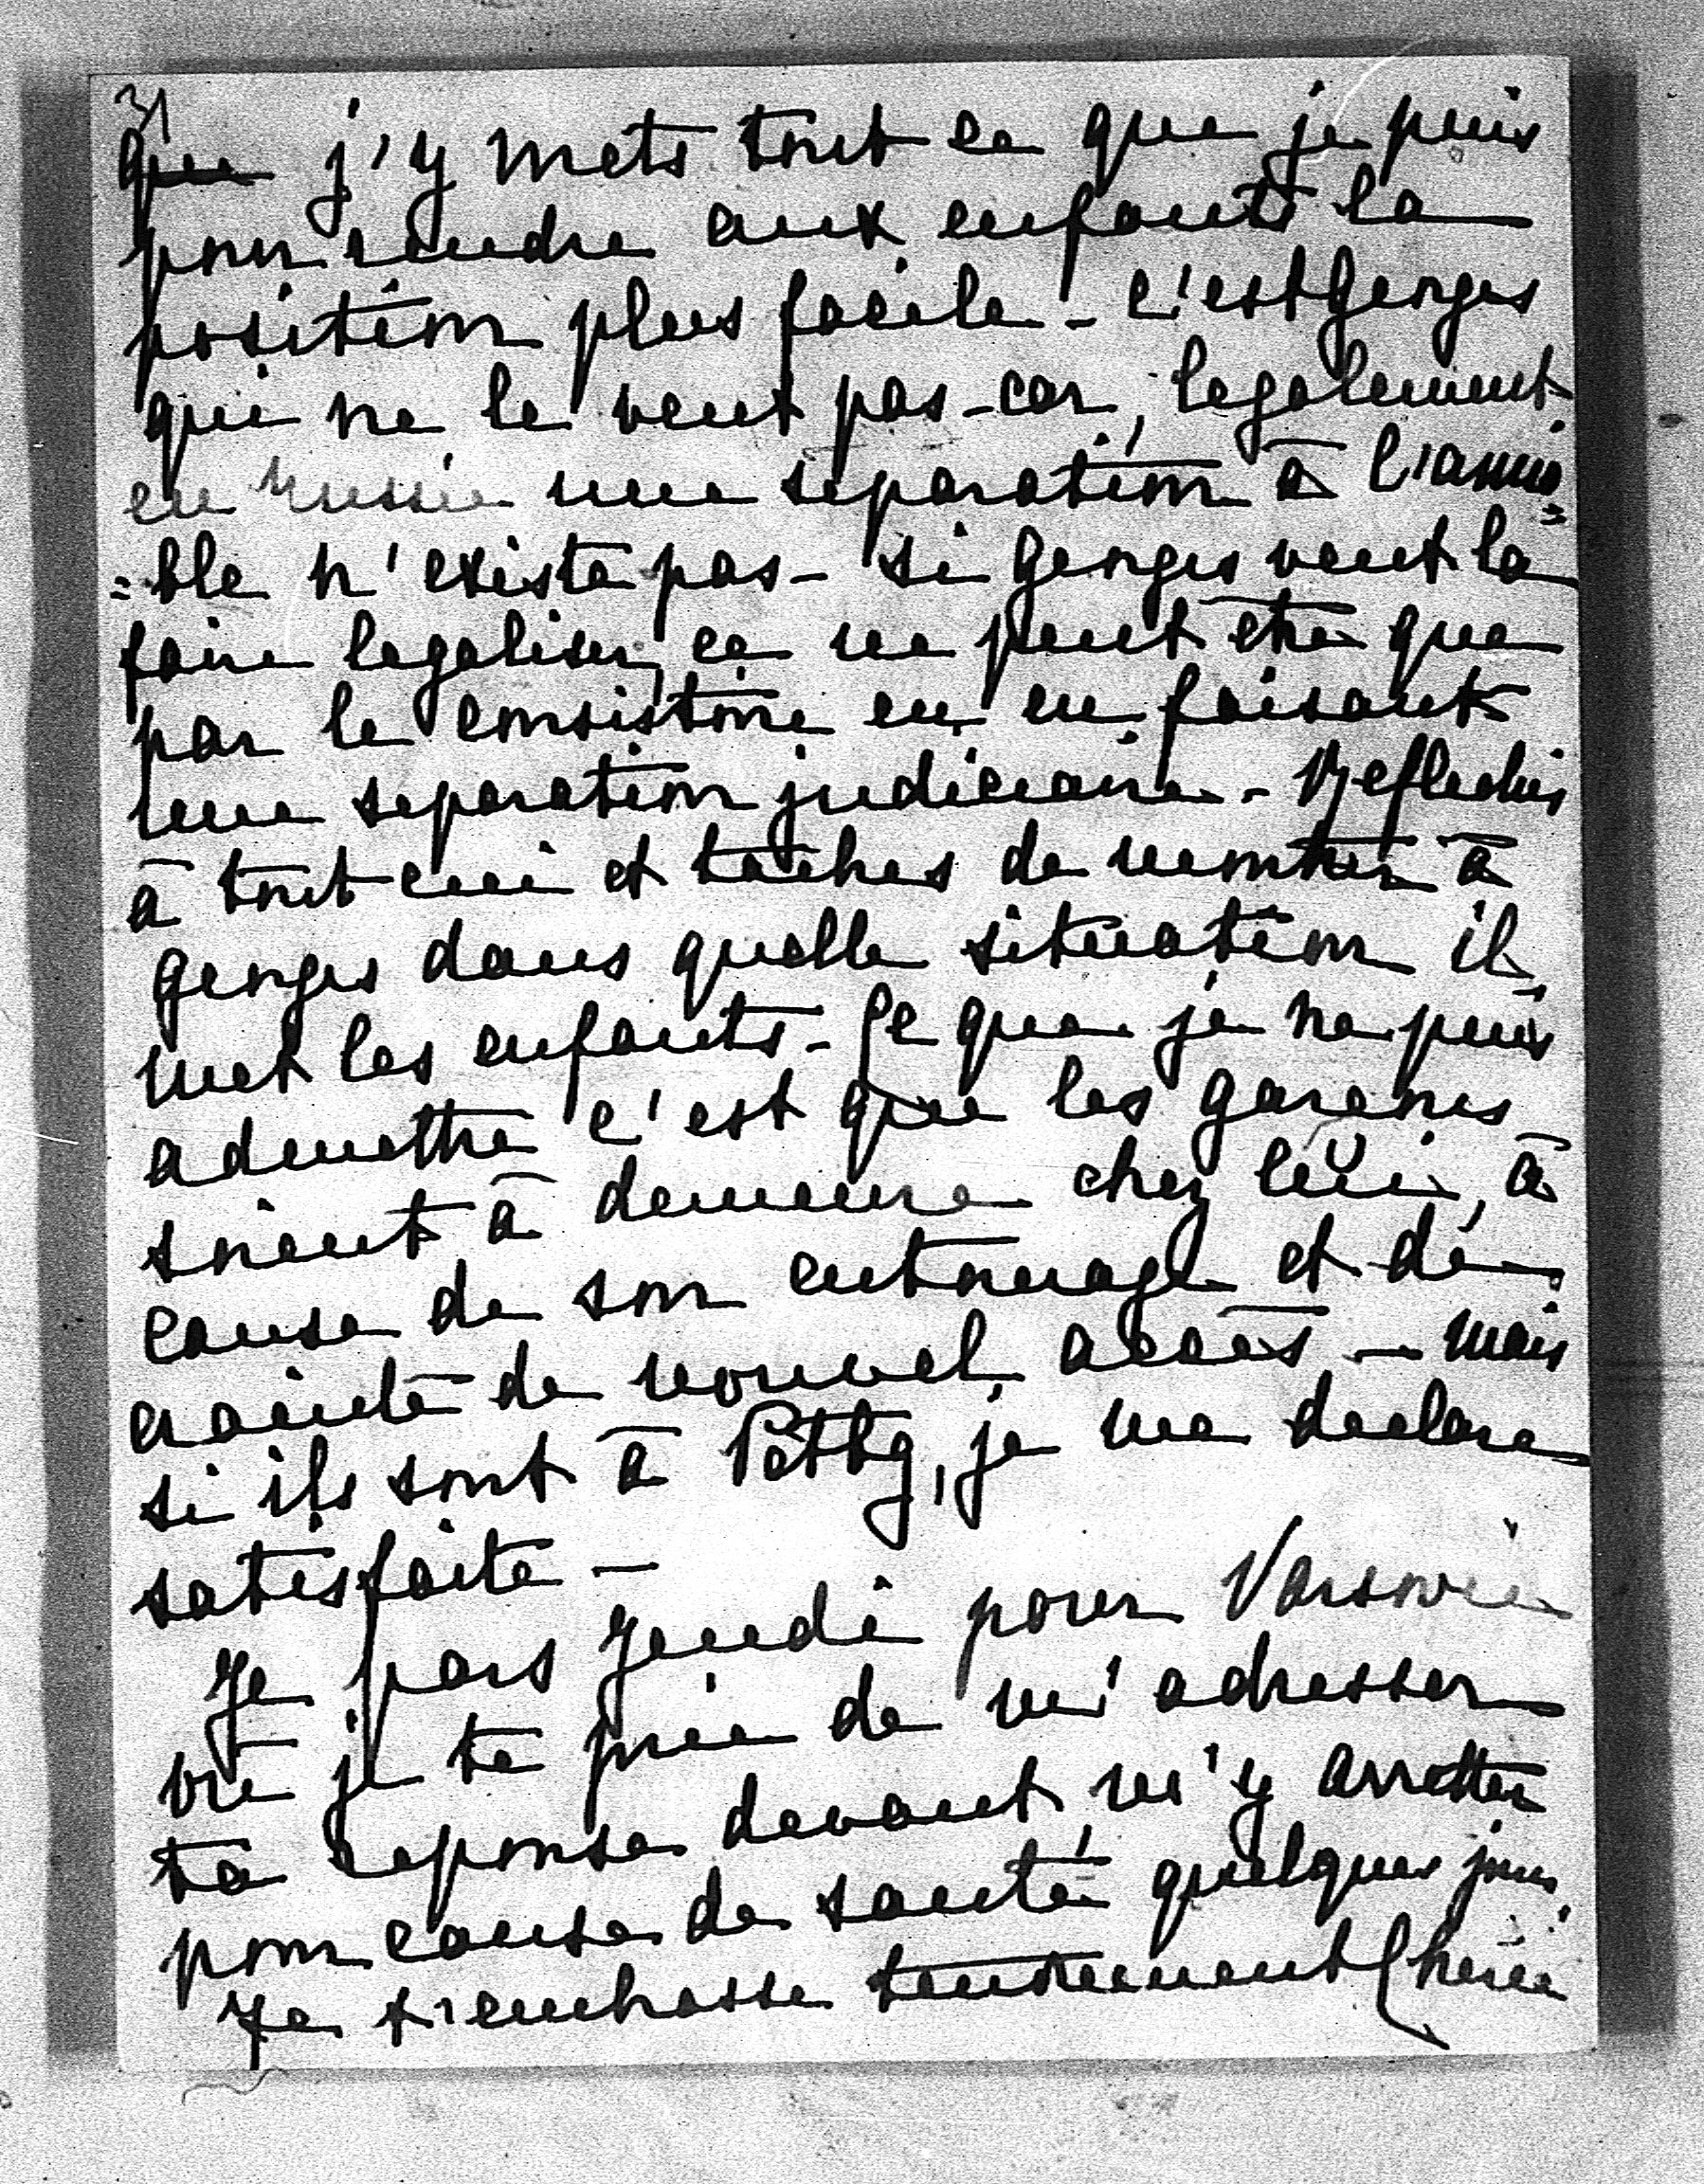 3)
que j'y mets tout ce que je puis
pour rendre aux enfants la
position plus facile - c'est Georges
qui ne le veut pas - car, legalement
en Russie une separation à l'amia=
=ble n'existe pas - si Georges veut la
faire legaliser, ce ne peut être que
par le consistoire en en faisant
une separation judiciaire - Reflechis
à tout ceci et taches de montrer à
Georges dans quelle situation il
met les enfants - Ce que je ne puis
admettre c'est que les garçons
soient à demeure chez lui, à
cause de son entourage et de
crainte de nouvel accès - mais
si ils sont à Petbg, je me declare
satisfaite -
Je pars Jeudi pour Varsovie
où je te prie de m'adresser
ta reponse devant m'y arretter
pour cause de santé quelques jours
Je t'embrasse tendrement